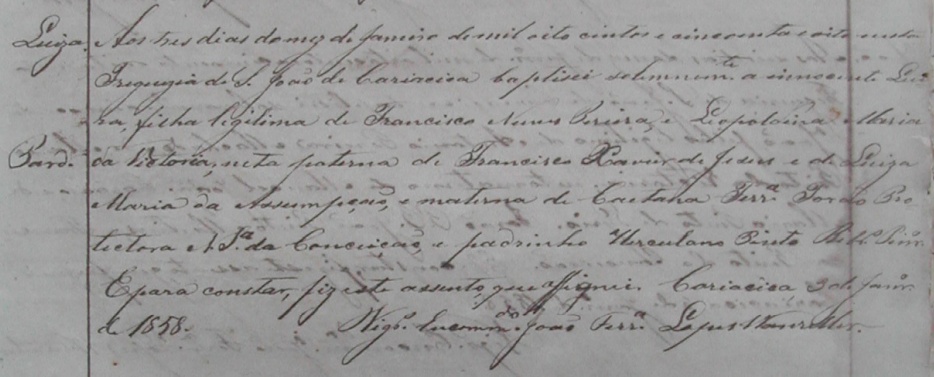 Luiza. Aos tres dias do mez de Janeiro de mil oito centos e cincoenta e oito nesta
Freguezia de S. João de Cariacica baptisei solemnemte. a innocente Lui-
za, filha legitima de Francisco Nunes Pereira, e Leopoldina Maria
Pard.ª da Victoria, neta paterna de Francisco Xavier de Jesus e de Luiza
Maria da Assumpção, e materna de Caetana Ferr.ª Forão Pro-
tectora N. S.ª da Conceição, e padrinho Herculano Pinto
E para constar, fiz este assento, que assignei. Cariacica 3 de Janr.
de 1858. Vigr.º Encomm.do João Ferr.ª Lopes